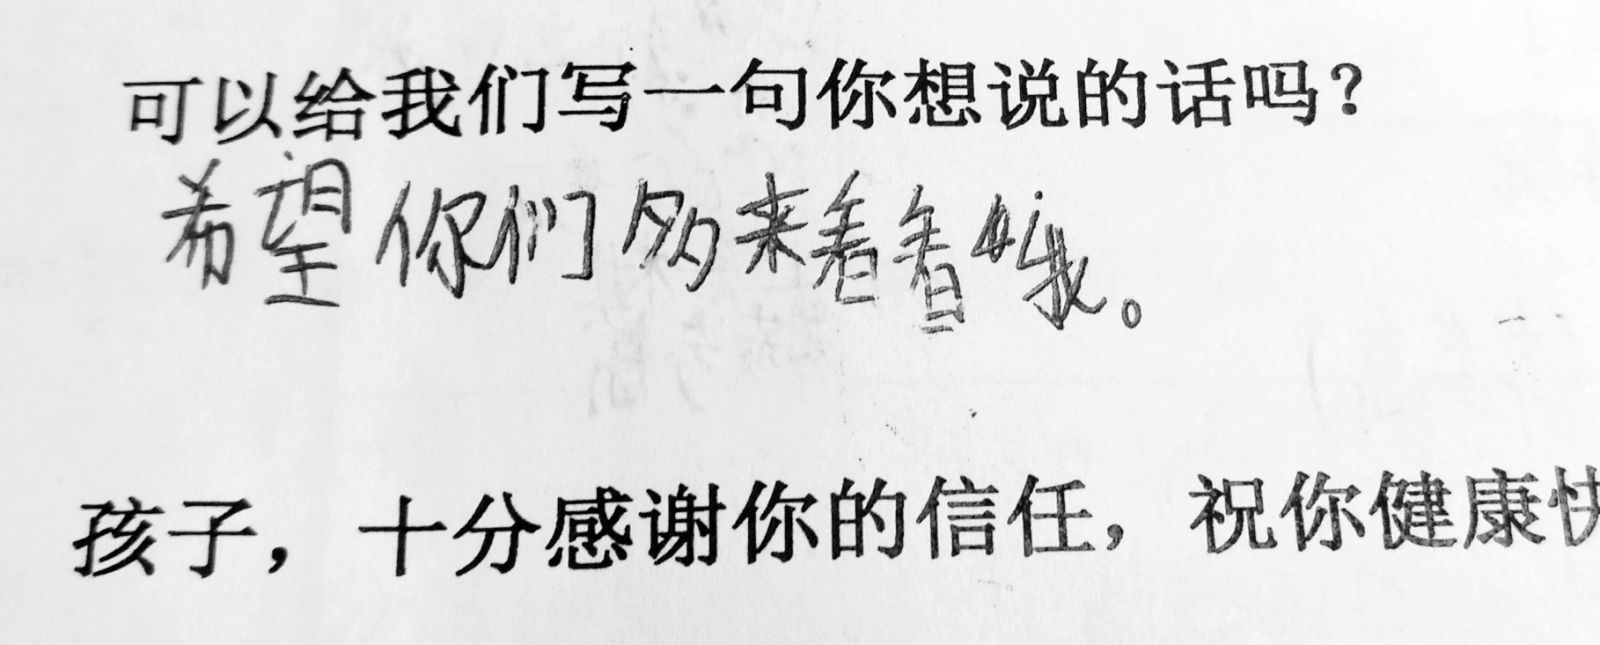 可以给我们写一句你想说的话吗？
希望你们多来看看我。
孩子，十分感谢你的信任，祝你健康快